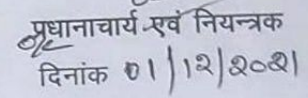 प्रधानाचार्य एवं नियन्त्रक
दिनांक 01/12/2021